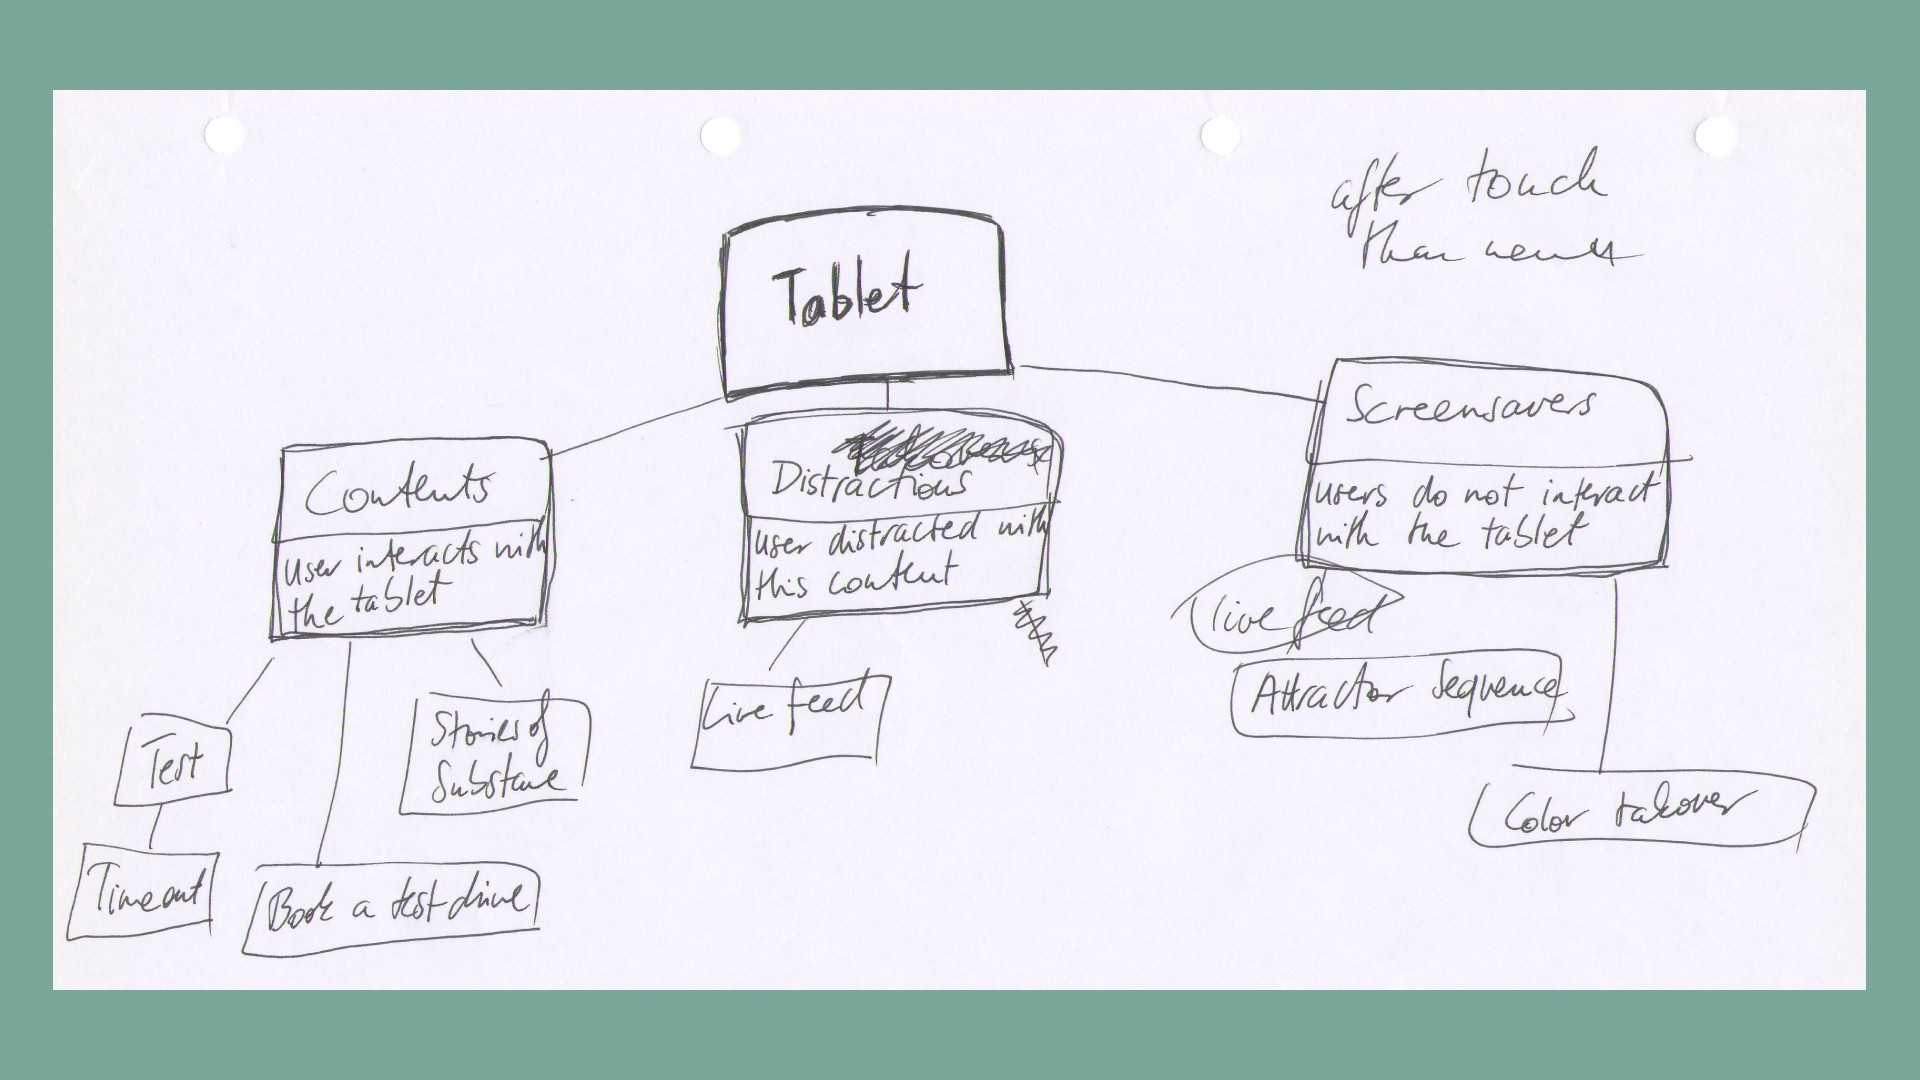 after touch
than
Tablet
Screensavers
users do not interact
with the tablet
Contents
user interacts with
the tablet
Distractions
user distracted with
this content
live feed
Attractor Sequence
Color takover
Live feed
Stories of
Substance
Test
Timeout
Book a test drive